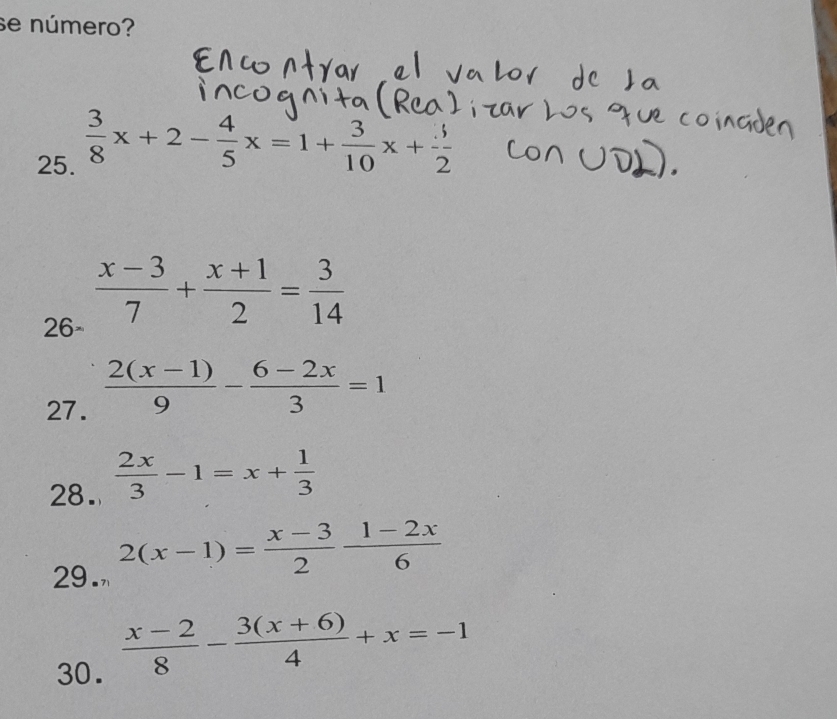 se número?
Encontrar el valor de la
incognita (Realizar los que coinciden
con UDL).
25. 3/8 x + 2 - 4/5 x = 1 + 3/10 x + 3/2
26- (x - 3)/7 + (x + 1)/2 = 3/14
27. 2(x - 1)/9 - (6 - 2x)/3 = 1
28. 2x/3 - 1 = x + 1/3
29. 2(x - 1) = (x - 3)/2 (1 - 2x)/6
30. (x - 2)/8 - 3(x + 6)/4 + x = -1